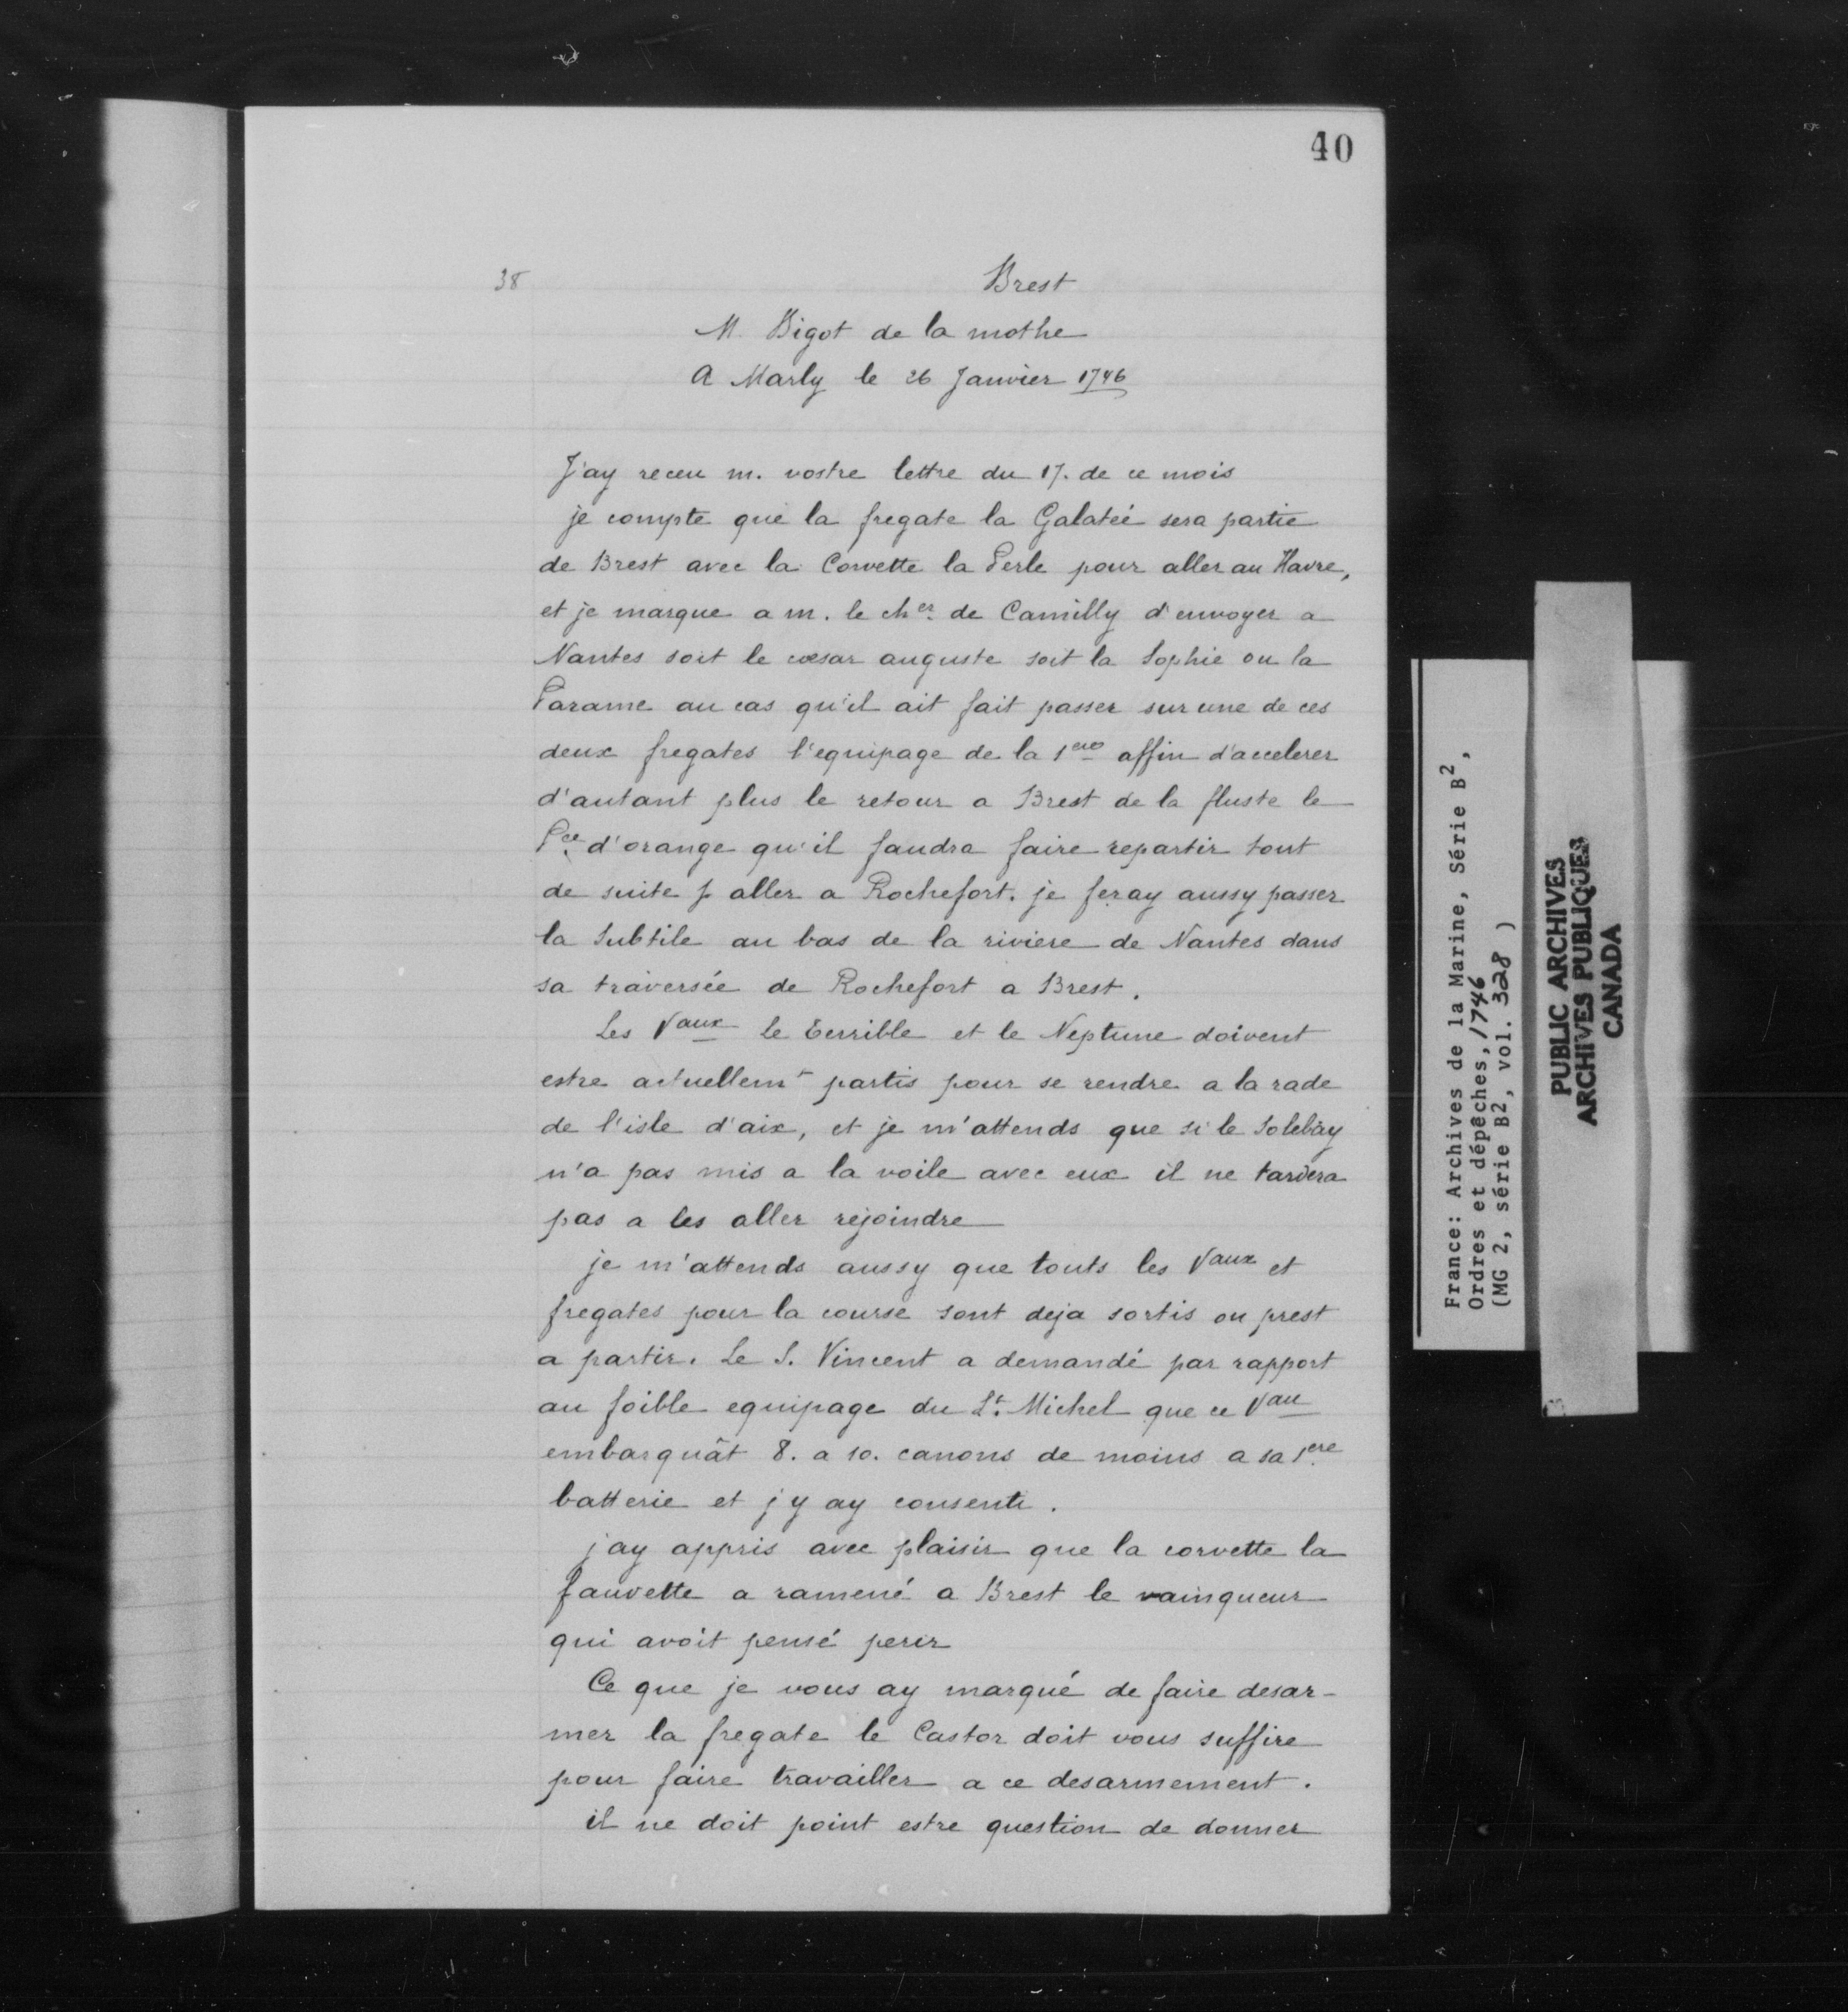 40
38
Brest
M. Bigot de la mothe
A Marly le 26 Janvier 1746
J'ay receu m. vostre lettre du 17. de ce mois
je compte que la fregate la Galateé sera partie
de Brest avec la Corvette la Perle pour aller au Havre,
et je marque a m. le cher. de Camilly d'envoyer a
Nantes soit le cesar auguste soit la Sophie ou la
Parame au cas qu'il ait fait passer sur une de ces
deux fregates l'equipage de la 1ere affin d'accelerer
d'autant plus le retour a Brest de la fluste le
Pce. d'orange qu'il faudra faire repartir tout
de suite p aller a Rochefort. je feray aussy passer
la Subtile au bas de la riviere de Nantes dans
sa traversée de Rochefort a Brest.
Les Vaux le Terrible et le Neptune doivent
estre actuellemt partis pour se rendre a la rade
de l'isle d'aix, et je m'attends que si le Solebay
n'a pas mis a la voile avec eux il ne tardera
pas a les aller rejoindre
je m'attends aussy que touts les Vaux et
fregates pour la course sont deja sortis ou prest
a partir. Le S. Vincent a demandé par rapport
au foible equipage du St. Michel que ce Vau
embarquât 8. a 10. canons de moins a sa 1ere
batterie et j'y ay consenti.
j'ay appris avec plaisir que la corvette la
fauvette a ramené a Brest le vainqueur
qui avoit pensé perir
Ce que je vous ay marqué de faire desar-
mer la fregate le Castor doit vous suffire
pour faire travailler a ce desarmement.
il ne doit point estre question de donner
France: Archives de la Marine, Série B2,
Ordres et dépêches, 1746
(MG 2, série B2, vol. 328 )
PUBLIC ARCHIVES
ARCHIVES PUBLIQUES
CANADA